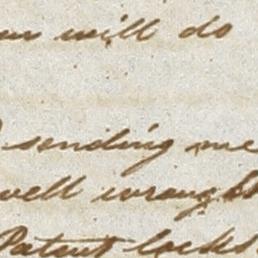 will do
sending me
well wrought
Patent locks